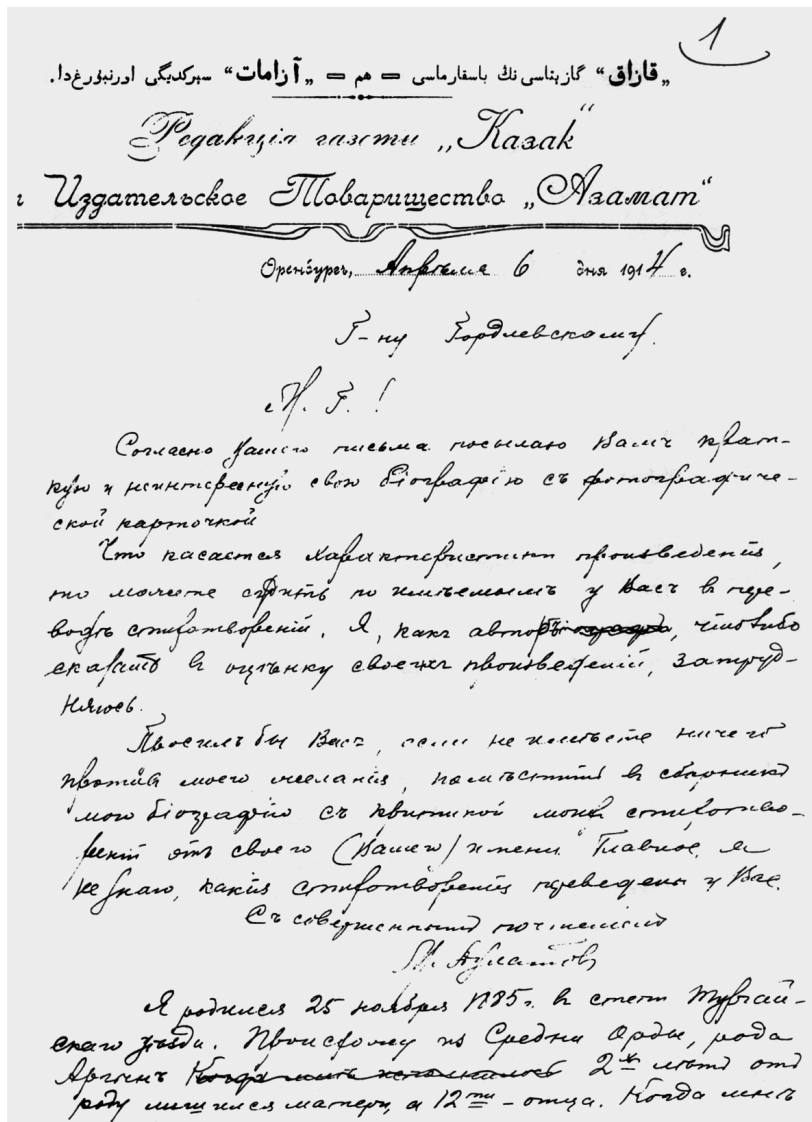 1
„قازاق“ گازيتاسى نڭ باسقارماسى = هم = „آزامات“ سيركديگى اورنبۇرغ‌دا.
Редакція газеты „Казак“
и Издательское Товарищество „Азамат“
Оренбургъ, Апрѣля 6 дня 1914 г.
Г-ну Гордлевскому.
М. Г.!
Согласно Вашего письма посылаю Вамъ крат-
кую и неинтересную свою біографію съ фотографиче-
ской карточкой
Что касается характеристики произведенія,
то можете судить по имѣемымъ у Васъ в пере-
водѣ стихотвореній. Я, какъ авторъ, что либо
сказать в оцѣнку своихъ произведеній, затруд-
няюсь.
Просилъ бы Васъ, если не имѣете ничего
противъ моего желанія, помѣстить в сборникѣ
мою біографію съ критикой моихъ стихотво-
реній отъ своего (Вашего) имени. Главное, я
не знаю, какія стихотворенія переведены у Вас.
Съ совершеннымъ почтеніемъ
М. Дулатов
Я родился 25 ноября 1885 г. в степи Тургай-
скаго уѣзда. Происхожу из Средней Орды, рода
Аргынъ Когда мнѣ исполнилось 2х лѣтъ отъ
роду лишился матери, а 12ти - отца. Когда мнѣ